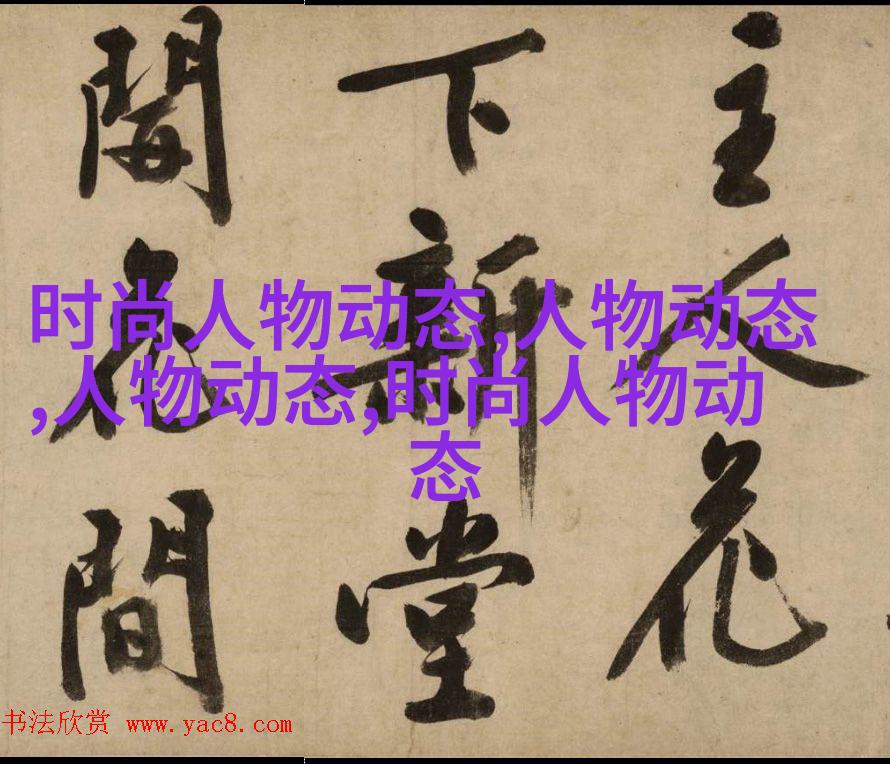 主人花
下新堂
花間
时尚人物动态,人物动态
,人物动态,时尚人物动
态
书法欣赏 www.yac8.com